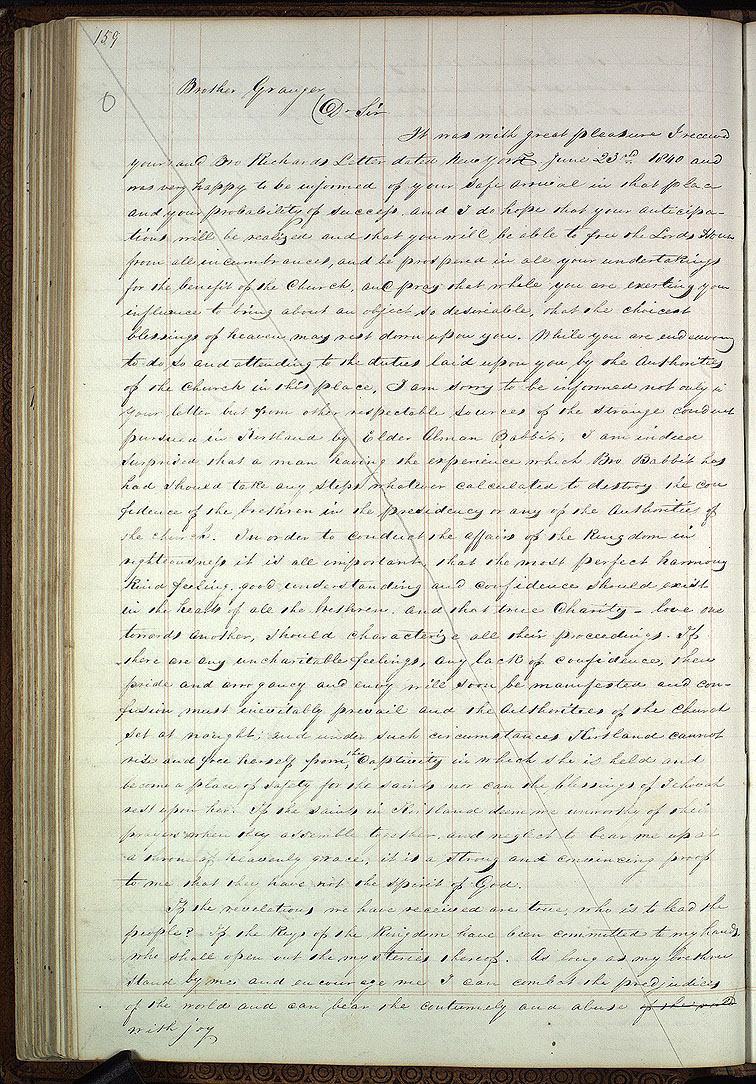 159
O
Brother Granger
Dr Sir
It was with great pleasure I received
yours and Bro Richards Letter dated New York June 23rd 1840 and
was very happy to be informed of your safe arrival in that place
and your probability of success. and I do hope that your anticipa-
tions will be realized and that you will be able to free the Lords House
from all incumbrances, and be prospered in all your undertakings
for the benefit of the Church, and pray that while you are exerting your
influence to bring about an object so desireable, that the choicest
blessings of heaven may rest down upon you. While you are endeavoring
to do so and attending to the duties laid upon you by the Authorities
of the Church in this place, I am sorry to be informed not only in
your letter but from other respectable sources of the strange conduct
pursued in Kirtland by Elder Alman Babbit, I am indeed
surprised that a man having the experience which Bro Babbit has
had should take any steps whatever calculated to destroy the con
fidence of the brethren in the presidency or any of the Authorities of
the church. In order to conduct the affairs of the Kingdom in
righteousness it is all important, that the most perfect harmony
kind feeling, good understanding and confidence should exist
in the hearts of all the brethren. and that true Charity— love one
towards another, should characterize all their proceedings. If
there are any uncharitable feelings, any lack of confidence, then
pride and arrogancy and envy will soon be manifested and con-
fusion must inevitably prevail and the Authorities of the Church
set at naught; and under such circumstances Kirtland cannot
rise and free herself from the Captivity in which she is held and
become a place of safety for the saints nor can the blessings of Jehovah
rest upon her. If the saints in Kirtland deem me unworthy of their
prayers when they assemble together, and neglect to bear me up at
a throne of heavenly grace, it is a strong and convincing proof
to me that they have not the spirit of God.
If the revelations we have received are true, who is to lead the
people? If the Keys of the Kingdom have been committed to my hands
who shall open out the mysteries thereof. As long as my brethren
stand by me and encourage me I can combat the predjudices
of the world and can bear the contumely and abuse of the world
with joy